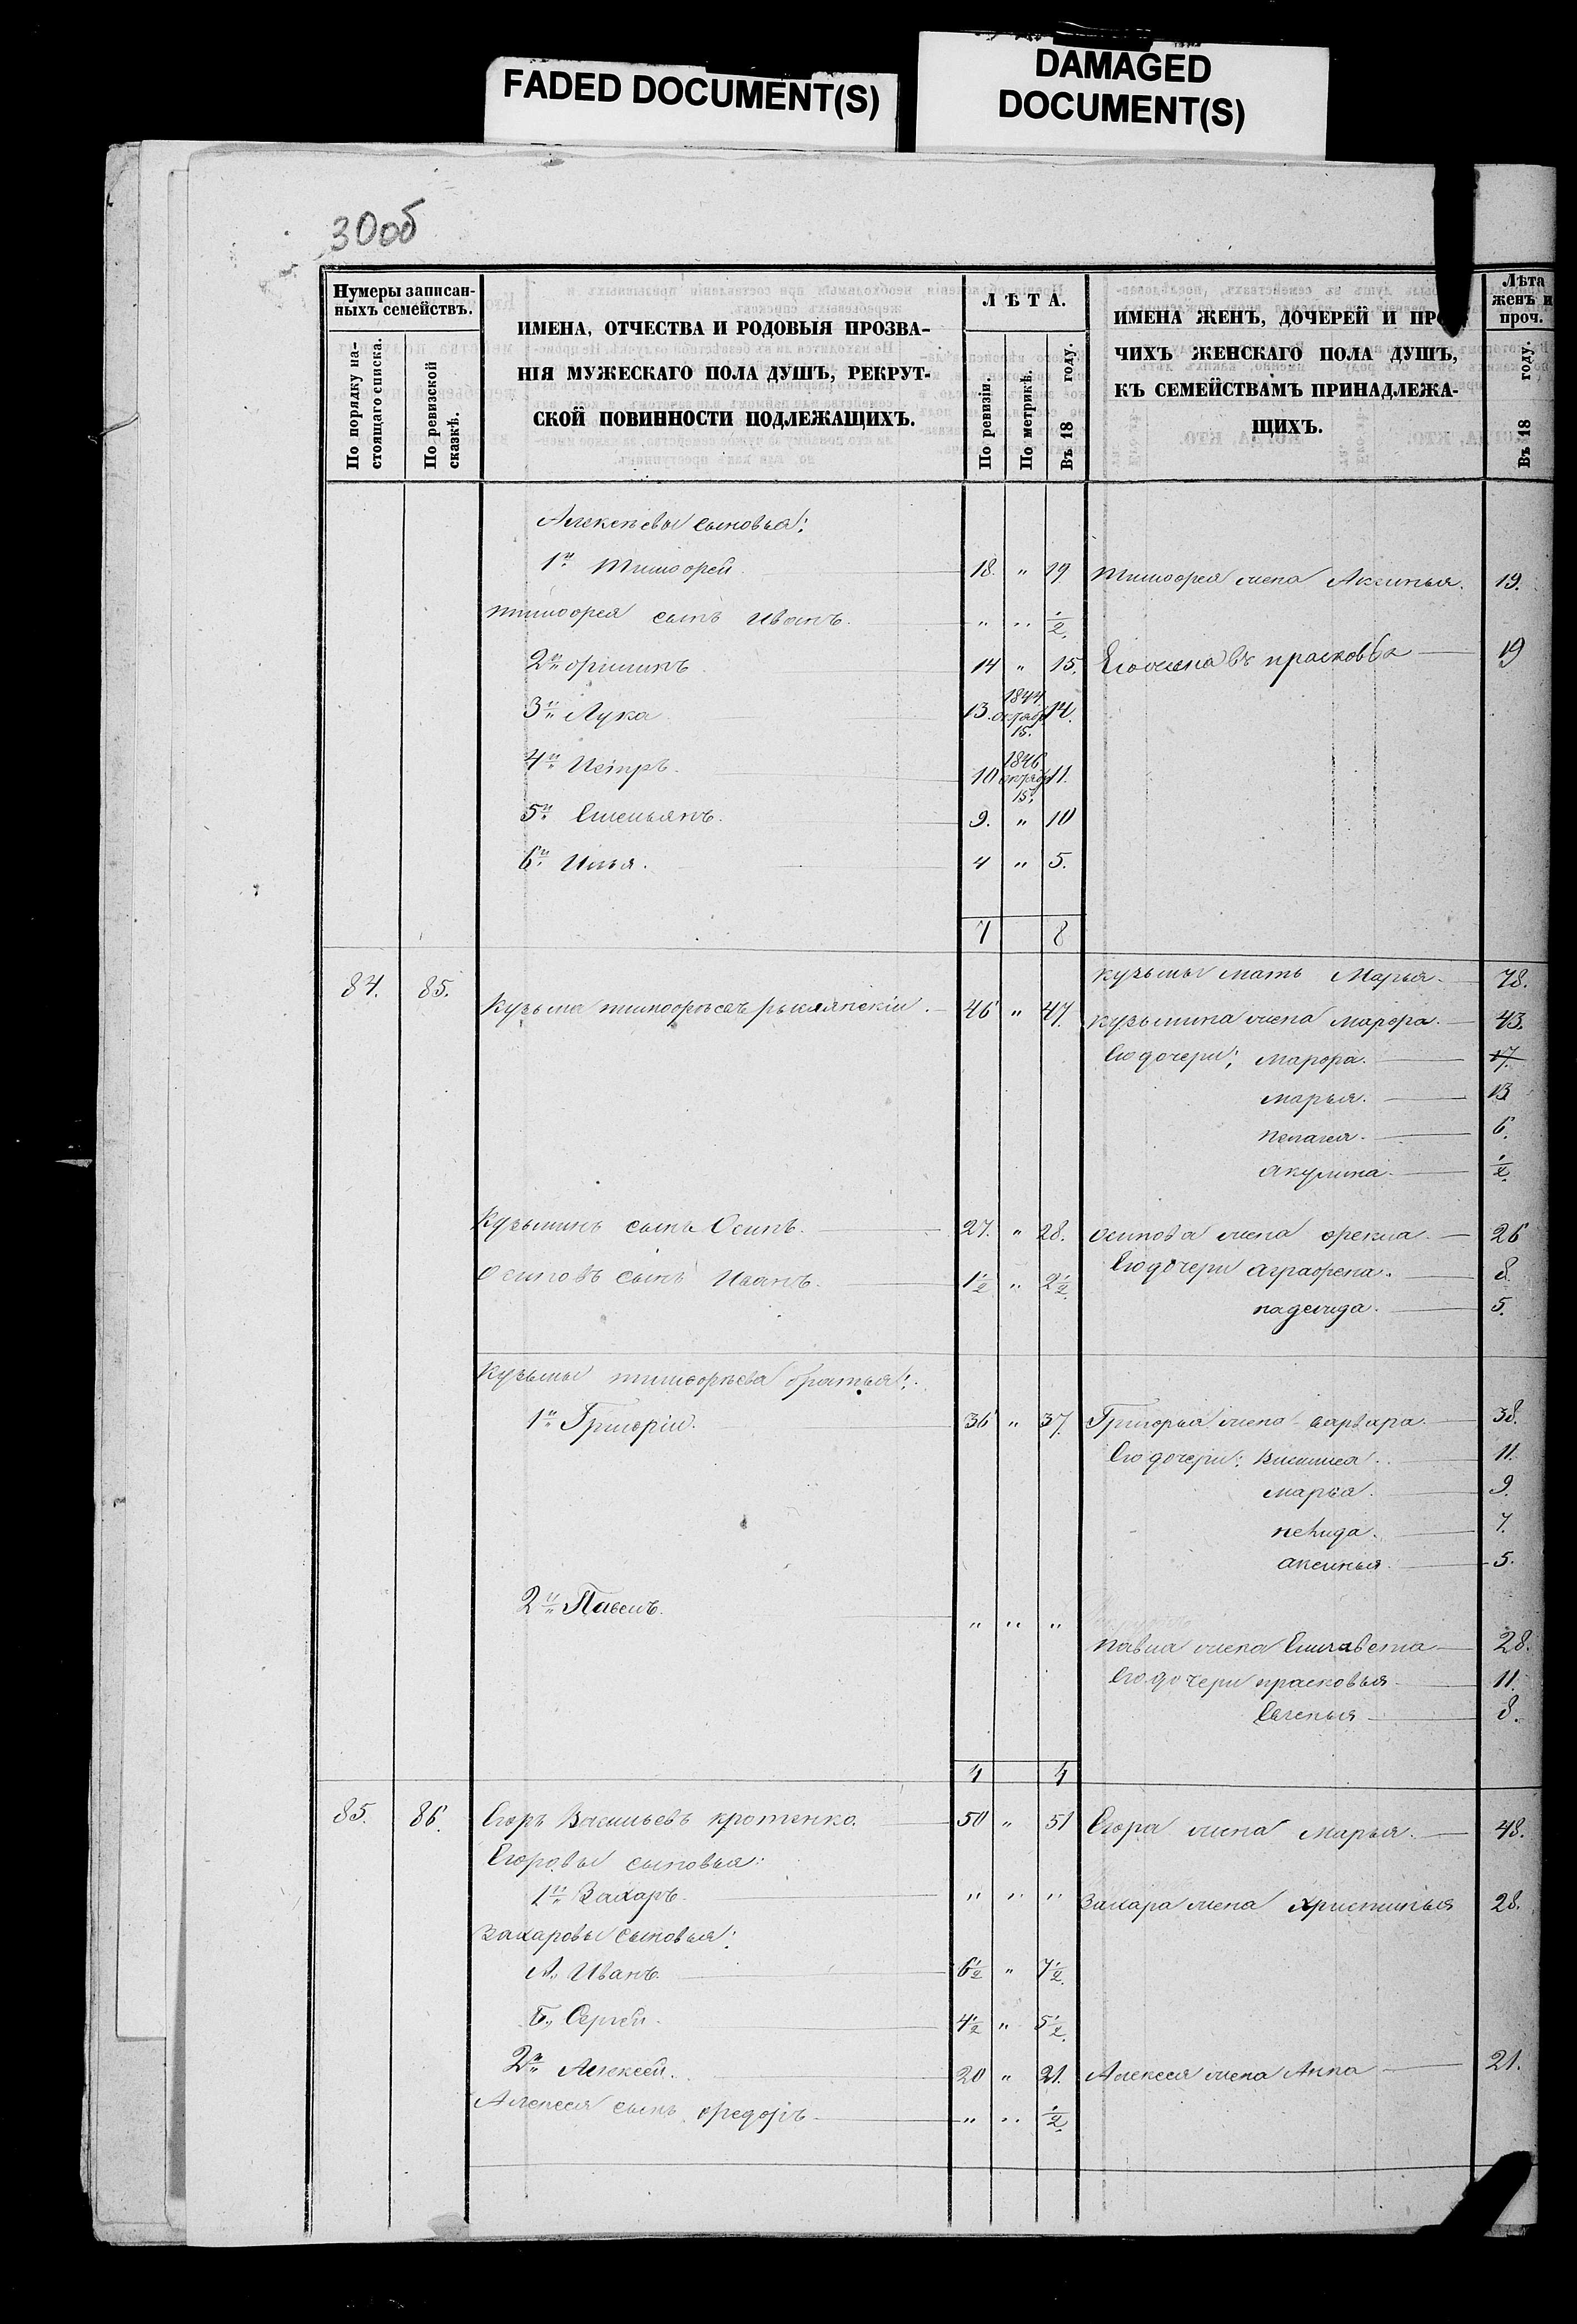 FADED DOCUMENT(S)
DAMAGED
DOCUMENT(S)
30об
Нумеры записан-
ныхъ семействъ.
По порядку на-
стоящаго списка.
По ревизской
сказкѣ.
ИМЕНА, ОТЧЕСТВА И РОДОВЫЯ ПРОЗВА-
НІЯ МУЖЕСКАГО ПОЛА ДУШЪ, РЕКРУТ-
СКОЙ ПОВИННОСТИ ПОДЛЕЖАЩИХЪ.
ЛѢТА.
По ревизіи.
По метрикѣ.
Въ 18 году.
ИМЕНА ЖЕНЪ, ДОЧЕРЕЙ И ПРО
ЧИХЪ ЖЕНСКАГО ПОЛА ДУШЪ,
КЪ СЕМЕЙСТВАМЪ ПРИНАДЛЕЖА-
ЩИХЪ.
Лѣта
женъ и
проч.
Въ 18 году.
Алексѣевы сыновья:
1й Тимофей 18. " 19 Тимофея жена Аксинья. 19.
тимофея сынъ Иванъ. " " 1/2.
2й филипъ 14 " 15. прасковья 19
3й Лука 13. 1844 октября 15. 14.
4й Петръ. 10 1846 октября 15. 11.
5й Емельянъ. 9. " 10
6й Илья. 4 " 5.
7 8
кузьмы мать Марья. 78.
84. 85. Кузьма тимофѣевъ 46 " 47. кузьмина жена марфа. 43.
Его дочери: марфа. 17.
марья. 13
пелагея. 6.
акулина 1/2.
Кузьминъ сынъ Осипъ. 27. " 28. осипова жена фекла. 26
Осиповъ сынъ Иванъ. 1 1/2 " 2 1/2. Его дочери аграфена. 8.
надежда. 5.
Кузьмы тимофѣева братья:
1й Григорій. 36 " 37. Григорья жена варвара. 38.
Его дочери: 11.
марья. 9.
7.
аксинья. 5.
2й Павелъ. " " "
павла жена Елизавета 28.
Его дочери прасковья 11.
Евгенья 8.
4 4
85. 86. Егоръ Васильевъ кротенко. 50 " 51 Егора жена марья. 48.
Егоровы сыновья:
1й Захаръ. " " " Захара жена христинья 28.
Захаровы сыновья:
А., Иванъ. 6 1/2 " 7 1/2.
Б., Сергей. 4 1/2 " 5 1/2.
2й Алексей. 20 " 21. Алексея жена Анна 21.
Алексея сынъ федоръ " " 1/2.